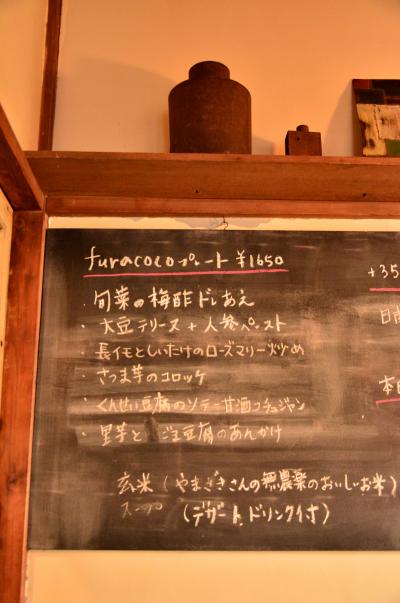 furacocoプレート ¥1650
・旬菜の梅酢ドレあえ
・大豆テリーヌ + 人参ペースト
・長イモとしいたけのローズマリー炒め
・さつま芋のコロッケ
・くんせい豆腐のソテー甘酒コチュジャン
・里芋とごま豆腐のあんかけ
玄米 (やまざきさんの無農薬のおいしいお米)
スープ (デザート、ドリンク付)
+35